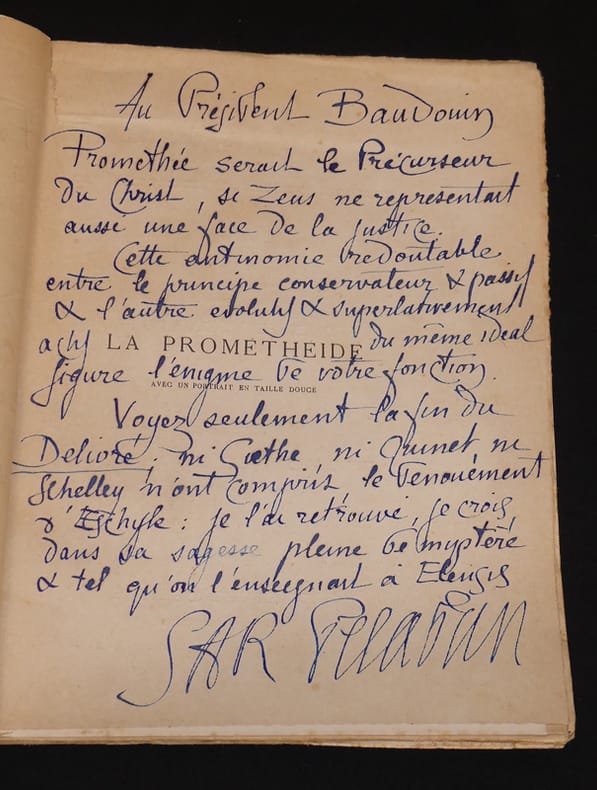 Au Président Baudouin
Promethée serait le Précurseur
du Christ, si Zeus ne representait
aussi une face de la justice.
Cette antinomie redoutable
entre le principe conservateur & passif
& l'autre evolutif & superlativement
actif LA PROMETHEIDE du même ideal
figure l'énigme de votre fonction.
AVEC UN PORTRAIT EN TAILLE DOUCE
Voyez seulement la fin du
Delivré; ni Gœthe ni Quinet ni
Schelley n'ont compris le denouément
d'Eschyle: je l'ai retrouvé, je crois
dans sa sagesse pleine de mystère
& tel qu'on l'enseignait à Eleusis
SAR Peladan